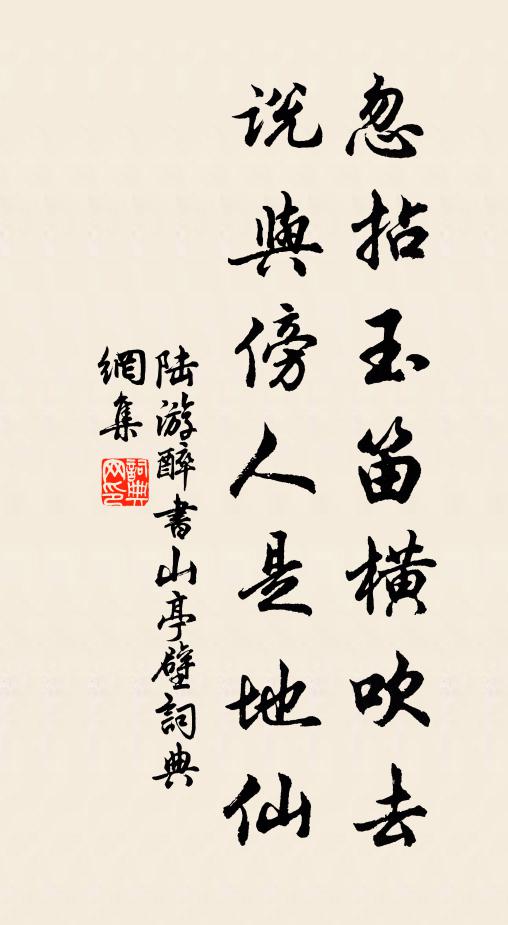 忽拈玉笛橫吹去
説與傍人是地仙
陆游醉書山亭壁詞典
網集
詞典
网印